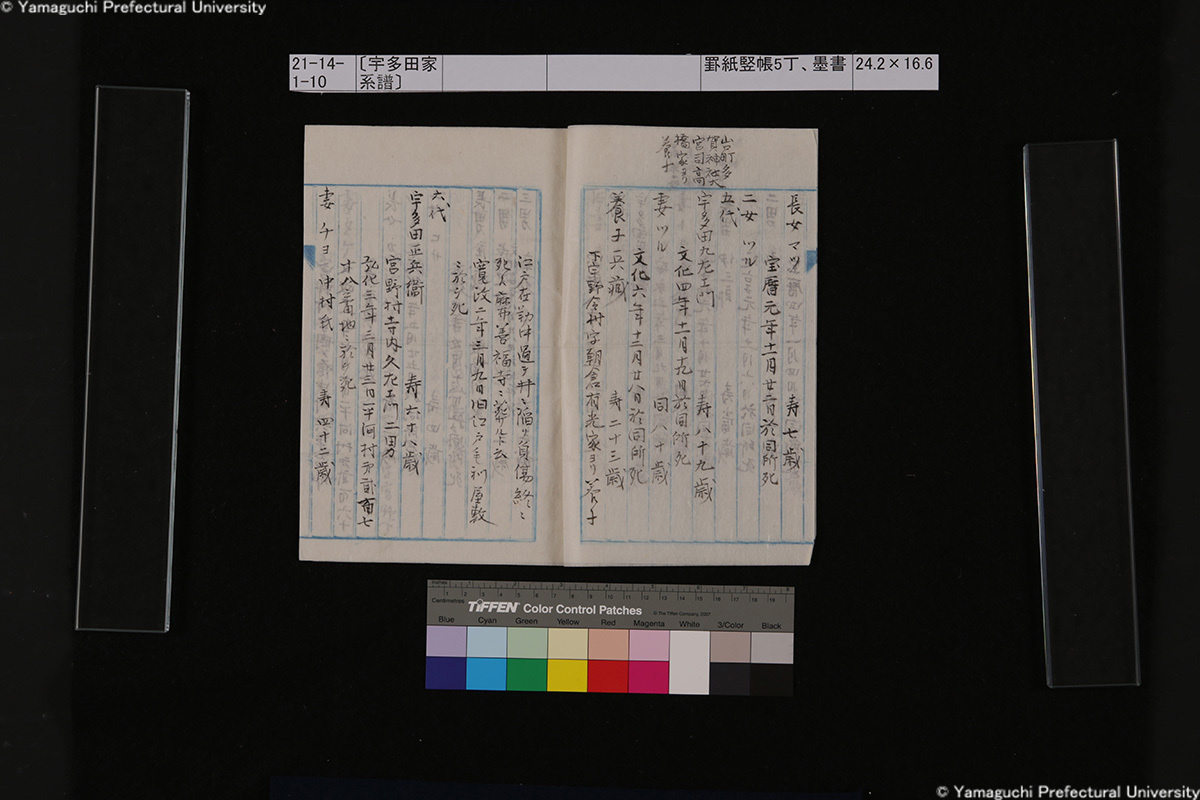 © Yamaguchi Prefectural University
21-14-1-10
〔宇多田家系譜〕
罫紙竪帳5丁、墨書
24.2×16.6
山口町多
賀神社大
宮司高
橋家ヨリ
養子
長女マツ
宝暦元年十一月廿二日於同所死 寿七歳
二女ツル
五代
宇多田九左エ門 寿八十九歳
文化四年十二月十九日於同所死
妻ツル 同八十歳
文化六年十二月廿八日於同所死
養子兵蔵 寿二十三歳
朝倉有光家ヨリ養子
江戸在勤中過テ井ニ陥リ負傷終ニ
死ス麻布善福寺ニ葬ルト云
寛政二年三月九日旧江戸毛利屋敷
ニ於テ死
六代
宇多田正兵衛 寿六十八歳
宮野村寺内久左エ門二男
弘化三年三月廿三日平河村第貳百七
十八番地ニ於テ死
妻チヨ 中村氏 寿四十二歳
inches
Centimetres
TIFFEN Color Control Patches
© The Tiffen Company, 2007
Blue Cyan Green Yellow Red Magenta White 3/Color Black
© Yamaguchi Prefectural University